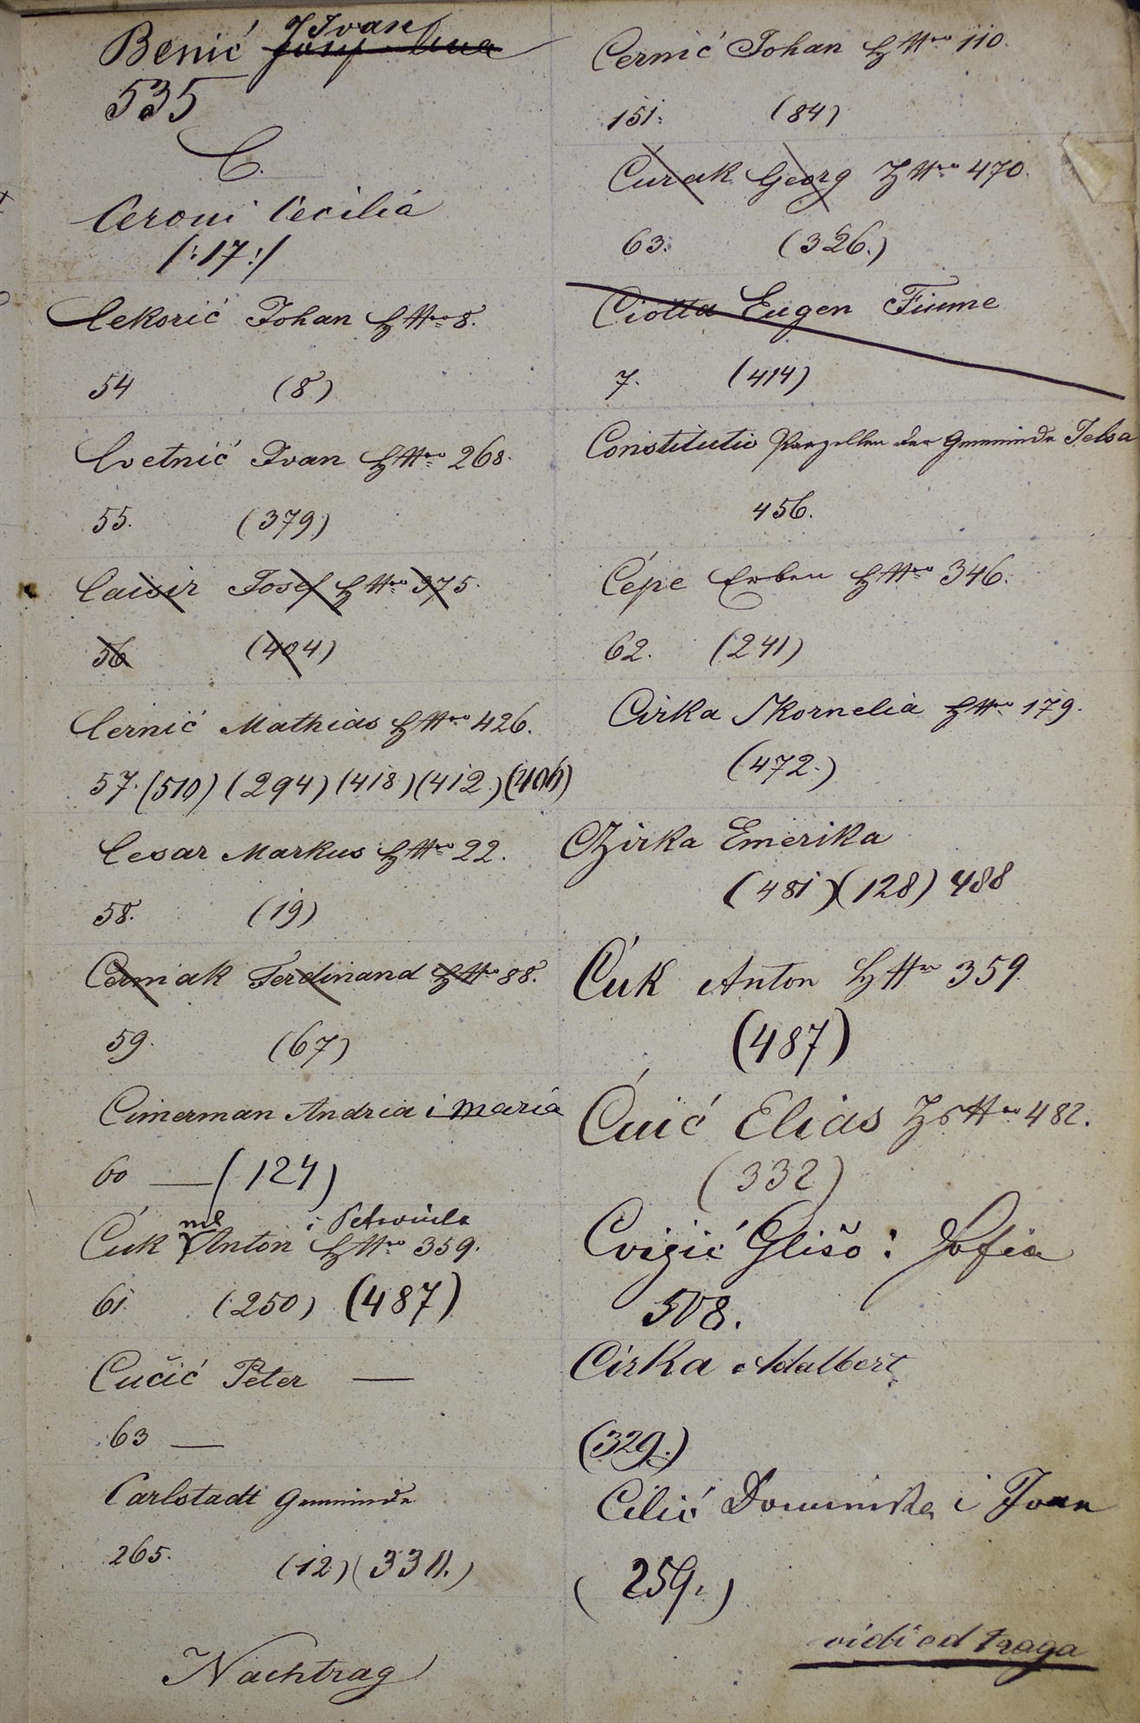 Benić Ivan
535
C.
Ceroni Cecilia
/:17:/
Cekorić Johan HNro 8.
54 (8)
Cvetnić Ivan HNro 268.
55. (379)
Josef HNro 375.
56 (404)
Černić Mathias HNro 426.
57. (510) (294) (418) (412.) (406)
Cesar Markus HNro 22.
58. (19)
Ferdinand HNro 88.
59. (67)
Cimerman Andria i Maria
60 — (124)
ml i Petronila
Ćuk Anton HNro 359.
61. (250) (487)
Čučić Peter —
63 —
Carlstadt Gemeinde
265. (12) (331.)
Nachtrag
Cernić Johan HNro 110.
151. (84)
Čurak Georg HNro 470.
63. (326.)
Ciotta Eugen Fiume
7. (414)
Constitutio Parzellen der Gemeinde
456.
Čepe Erben HNro 346.
62. (241)
Cirka Kornelia HNro 179.
(472.)
Czirka Emerika
(481) (128) 488
Ćuk Anton HNro 359.
(487)
Ćuić Elias HNro 482.
(332)
Cvizić Glišo i Sofia
508.
Cirka Adalbert
(329.)
Cilić Dominika i Ivan
(259.)
vidi od traga